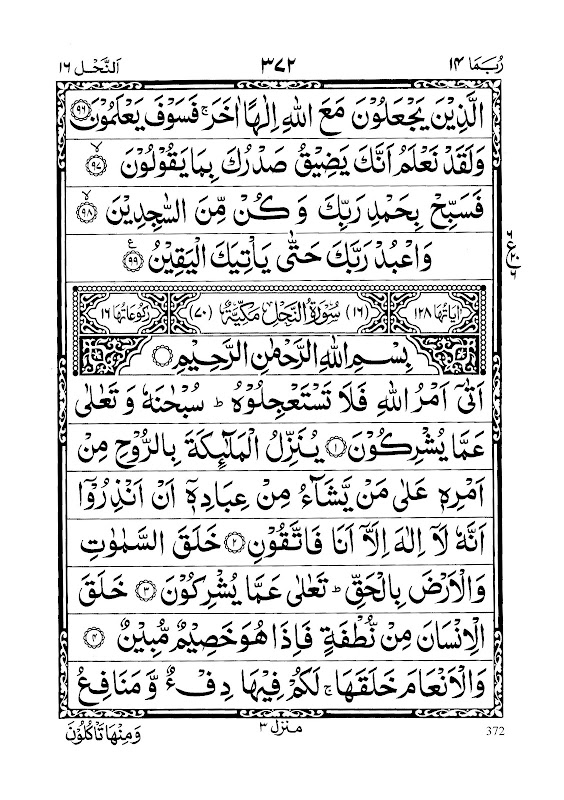 رُبَمَا ۱۴ ۳۷۲ اَلنَّحْل ۱۶
الَّذِيْنَ يَجْعَلُوْنَ مَعَ اللّٰهِ اِلٰهًا اٰخَرَ ۚ فَسَوْفَ يَعْلَمُوْنَ ﴿۹۶﴾
وَلَقَدْ نَعْلَمُ اَنَّكَ يَضِيْقُ صَدْرُكَ بِمَا يَقُوْلُوْنَ ۙ﴿۹۷﴾
فَسَبِّحْ بِحَمْدِ رَبِّكَ وَ كُنْ مِّنَ السّٰجِدِيْنَ ۙ﴿۹۸﴾
وَاعْبُدْ رَبَّكَ حَتّٰى يَاْتِيَكَ الْيَقِيْنُ ﴿۹۹﴾ ع
۶ ع ۲۰ ۶
اٰيَاتُهَا ۱۲۸ (۱۶) سُوْرَةُ النَّحْلِ مَكِّيَّةٌ (۷۰) رُكُوْعَاتُهَا ۱۶
بِسْمِ اللّٰهِ الرَّحْمٰنِ الرَّحِيْمِ
اَتٰۤى اَمْرُ اللّٰهِ فَلَا تَسْتَعْجِلُوْهُ ؕ سُبْحٰنَهٗ وَ تَعٰلٰى
عَمَّا يُشْرِكُوْنَ ﴿۱﴾ يُنَزِّلُ الْمَلٰٓئِكَةَ بِالرُّوْحِ مِنْ
اَمْرِهٖ عَلٰى مَنْ يَّشَآءُ مِنْ عِبَادِهٖۤ اَنْ اَنْذِرُوْۤا
اَنَّهٗ لَاۤ اِلٰهَ اِلَّاۤ اَنَا فَاتَّقُوْنِ ﴿۲﴾ خَلَقَ السَّمٰوٰتِ
وَالْاَرْضَ بِالْحَقِّ ؕ تَعٰلٰى عَمَّا يُشْرِكُوْنَ ﴿۳﴾ خَلَقَ
الْاِنْسَانَ مِنْ نُّطْفَةٍ فَاِذَا هُوَ خَصِيْمٌ مُّبِيْنٌ ﴿۴﴾
وَالْاَنْعَامَ خَلَقَهَا ۚ لَكُمْ فِيْهَا دِفْءٌ وَّ مَنَافِعُ
وَمِنْهَا تَاْكُلُوْنَ منزل ۳ 372